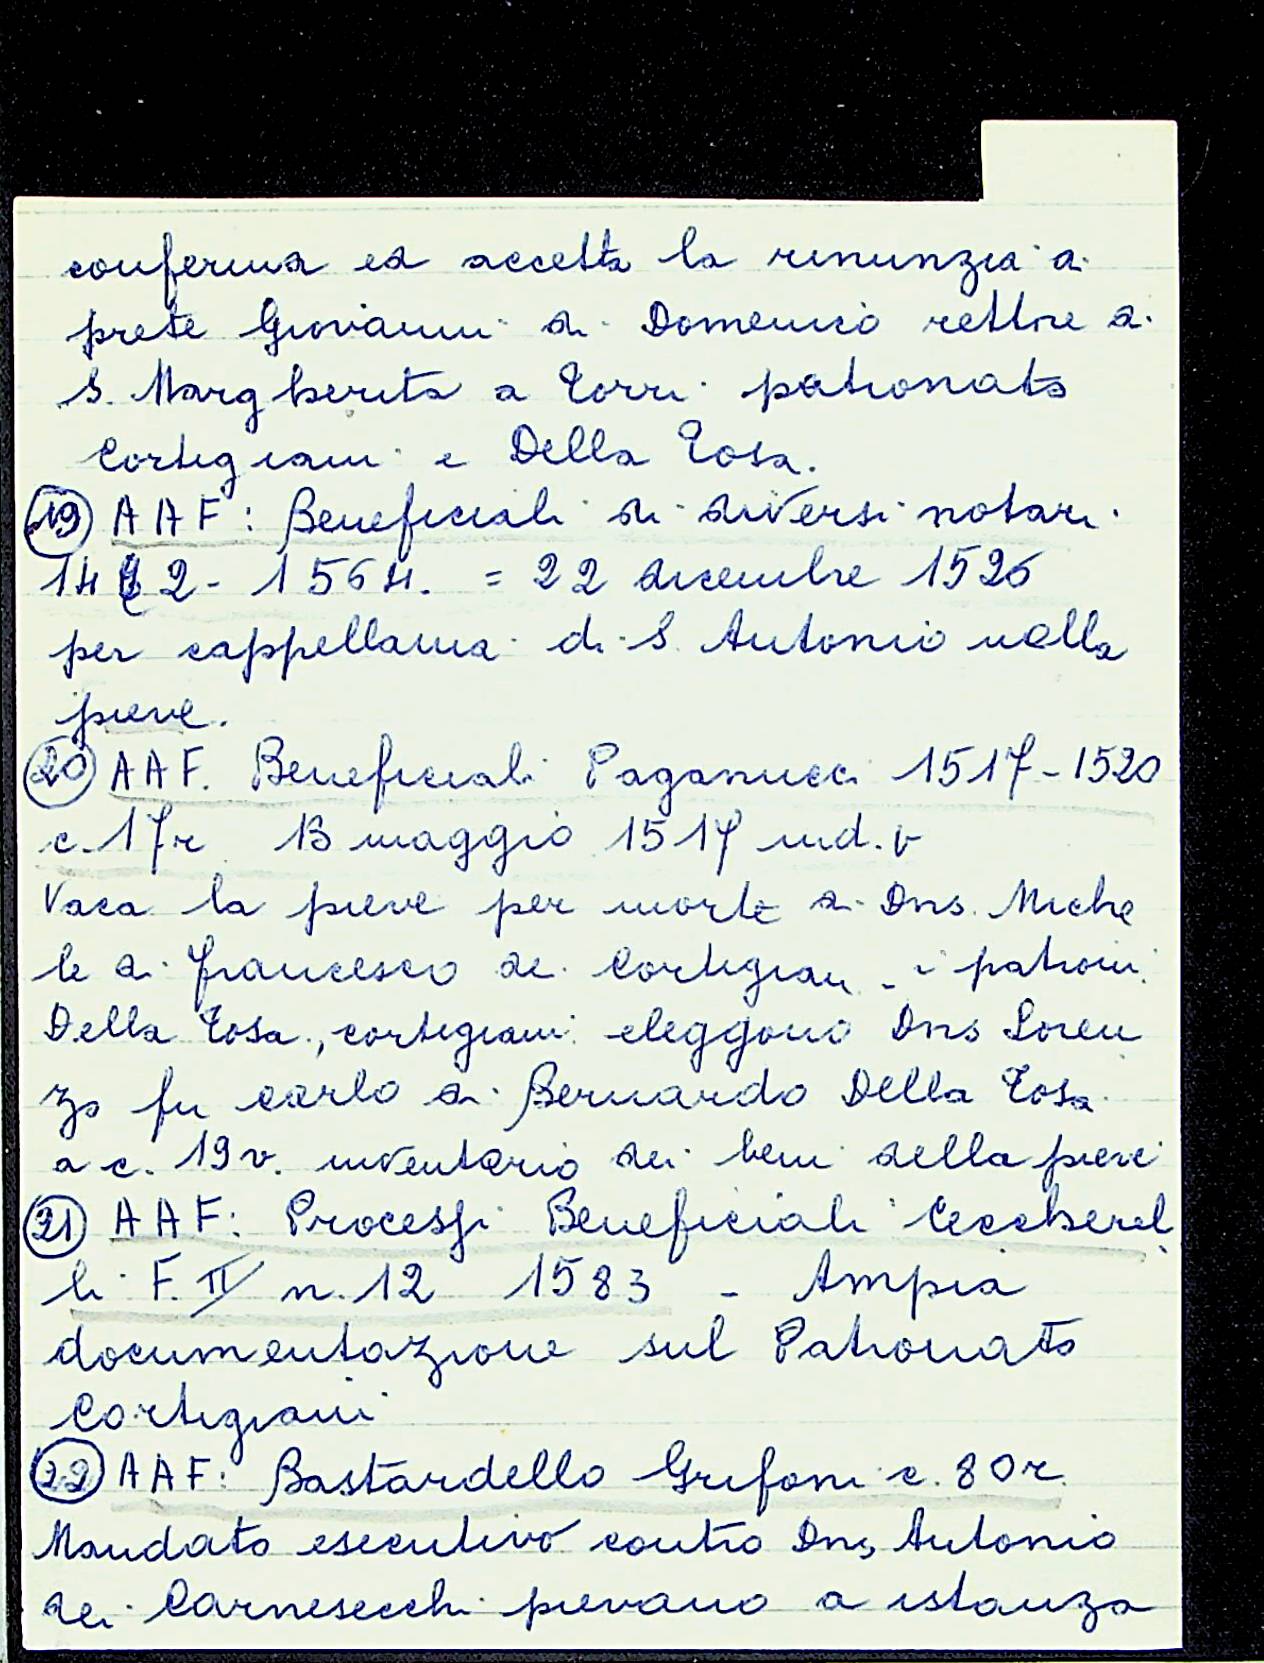 conferma ed accetta la renunzia di
prete Giovanni di Domenico rettore di
S. Margherita a Torri patronato
Cortigiani e Della Tosa.
19 AAF: Beneficiali di diversi notari
1472 - 1564. = 22 dicembre 1526
per cappellania di S. Antonio nella
pieve.
20 AAF. Beneficiali Paganucci 1517-1520
c. 17r 13 maggio 1517 ind. V
Vaca la pieve per morte di Dns. Miche
le di Francesco dei Cortigiani - i patroni
Della Tosa, Cortigiani eleggono Dns Loren
zo fu Carlo di Bernardo Della Tosa
a c. 19v. inventario dei beni della pieve
21 AAF: Processi Beneficiali Ceccherel
li F. II n. 12 1583 - Ampia
documentazione sul Patronato
Cortigiani
22 AAF: Bastardello Grifoni c. 80r.
Mandato esecutivo contro Dns Antonio
dei Carnesecchi pievano a istanza